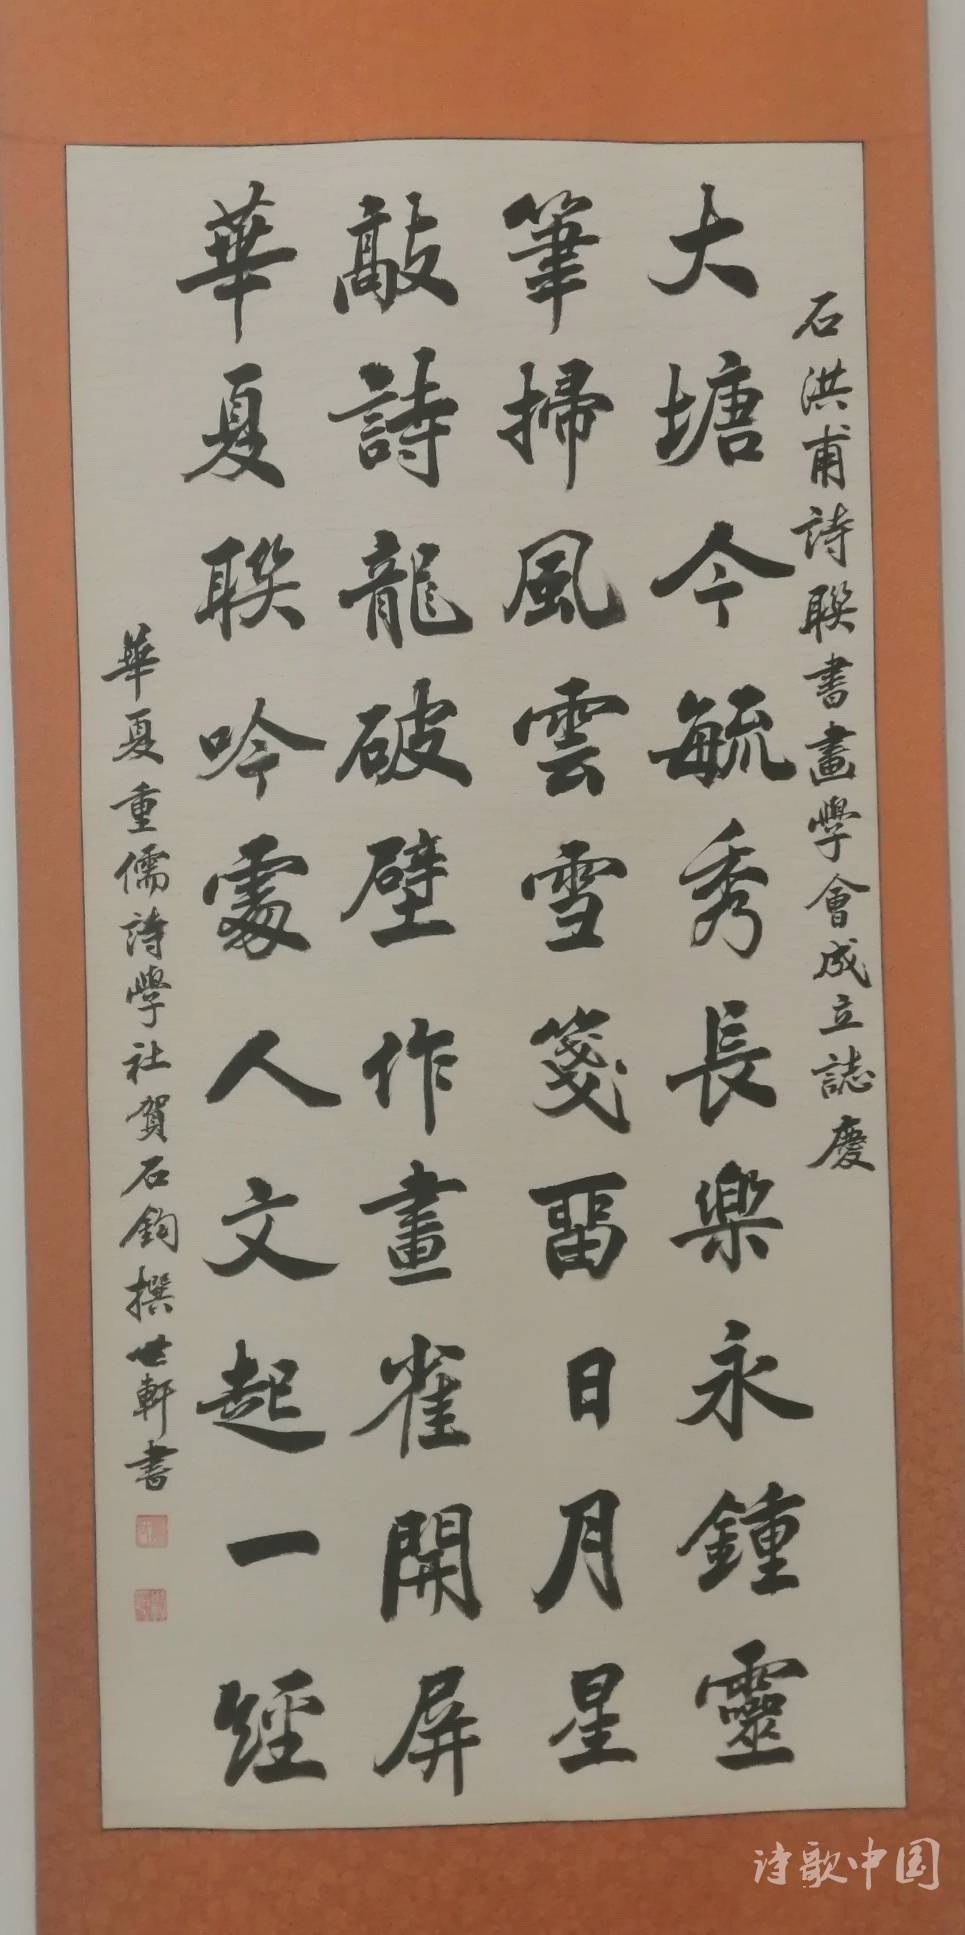 石洪甫詩聯書畫學會成立誌慶
大塘今毓秀長樂永鍾靈
筆掃風雲雪箋留日月星
敲詩龍破壁作畫雀開屏
華夏聯吟處人文起一經
華夏重儒詩學社賀石鈞撰世軒書
诗歌中国